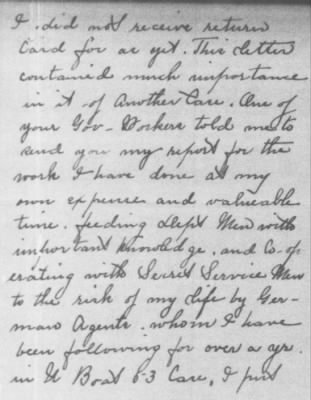 I did not receive return
Card for as yet. This letter
contained much importance
in it of Another Case. One of
your Gov- Workers told me to
send you my report for the
work I have done at my
own expense and valueable
time. feeding Dept Men with
important knowledge. and Co-op
erating with Secret Service Men
to the risk of my life by Ger-
man Agents. whom I have
been following for over a yr.
in U Boat 53 Case, I just